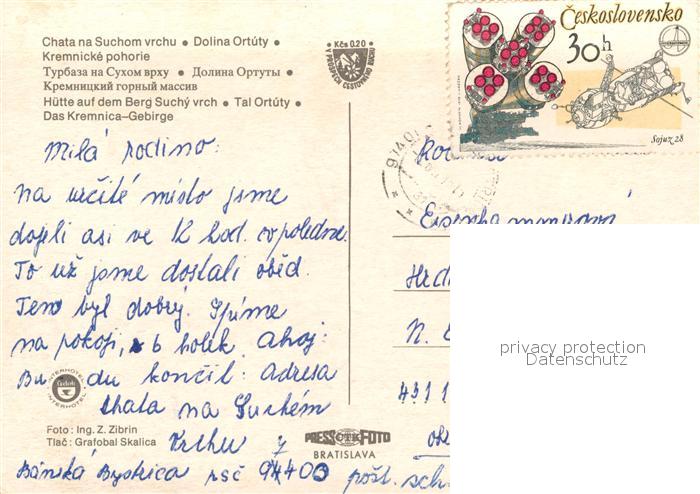 Chata na Suchom vrchu • Dolina Ortúty •
Kremnické pohorie
Турбаза на Сухом врху • Долина Ортуты •
Кремницкий горный массив
Hütte auf dem Berg Suchý vrch • Tal Ortúty •
Das Kremnica-Gebirge
Kčs 0.20
V PROSPECH CESTOVNÉHO RUCHU
Československo
30h
Sojuz 28
Milá rodino:
na určité místo jsme
dojeli asi ve 12 hod. odpoledne.
To už jsme dostali oběd.
Ten byl dobrý. Spíme
na pokoji, 6 holek. Ahoj:
Budu končil: adresa
Chata na Suchém
Vrchu
Bánská Bystrica psč 97400
INTERHOTEL
INTERHOTEL
Foto: Ing. Z. Zibrin
Tlač: Grafobal Skalica
PRESSFOTO
BRATISLAVA
N.
431 1
pošt. sch
privacy protection
Datenschutz